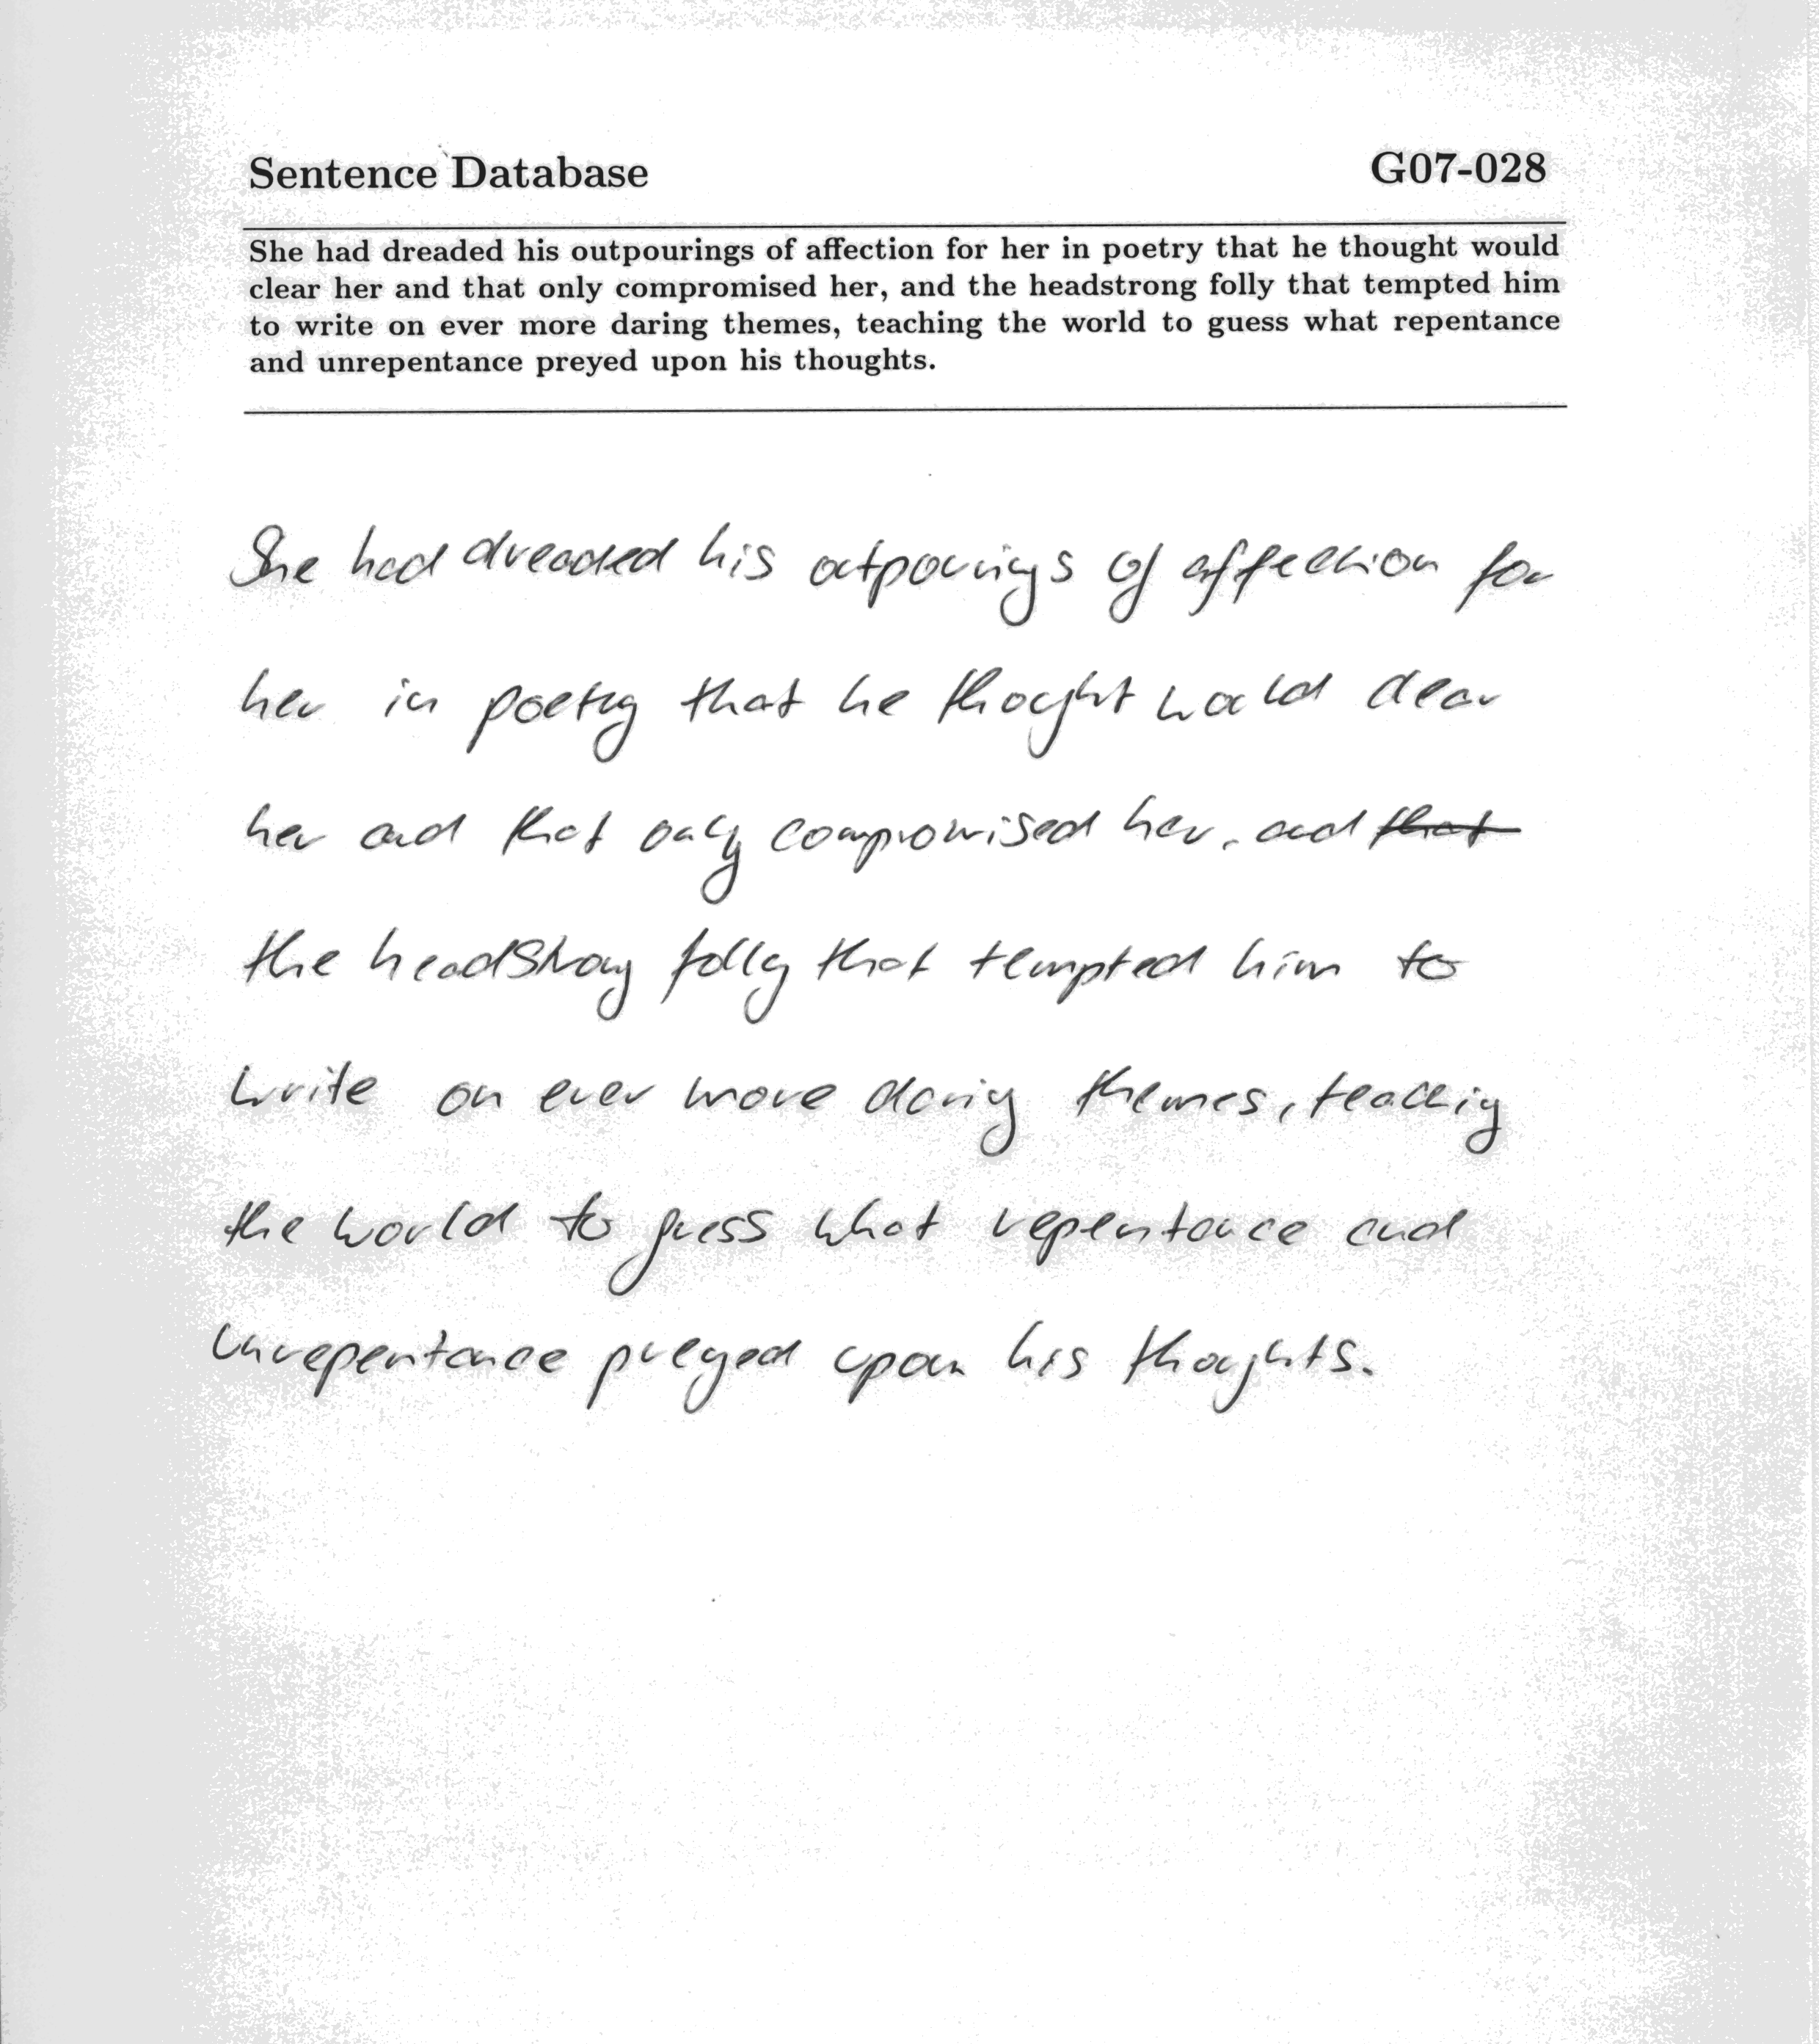 Sentence Database G07-028
She had dreaded his outpourings of affection for her in poetry that he thought would
clear her and that only compromised her, and the headstrong folly that tempted him
to write on ever more daring themes, teaching the world to guess what repentance
and unrepentance preyed upon his thoughts.
She had dreaded his outpourings of affection for
her in poetry that he thought would clear
her and that only compromised her, and that
the headstrong folly that tempted him to
write on ever more daring themes, teaching
the world to guess what repentance and
unrepentance preyed upon his thoughts.